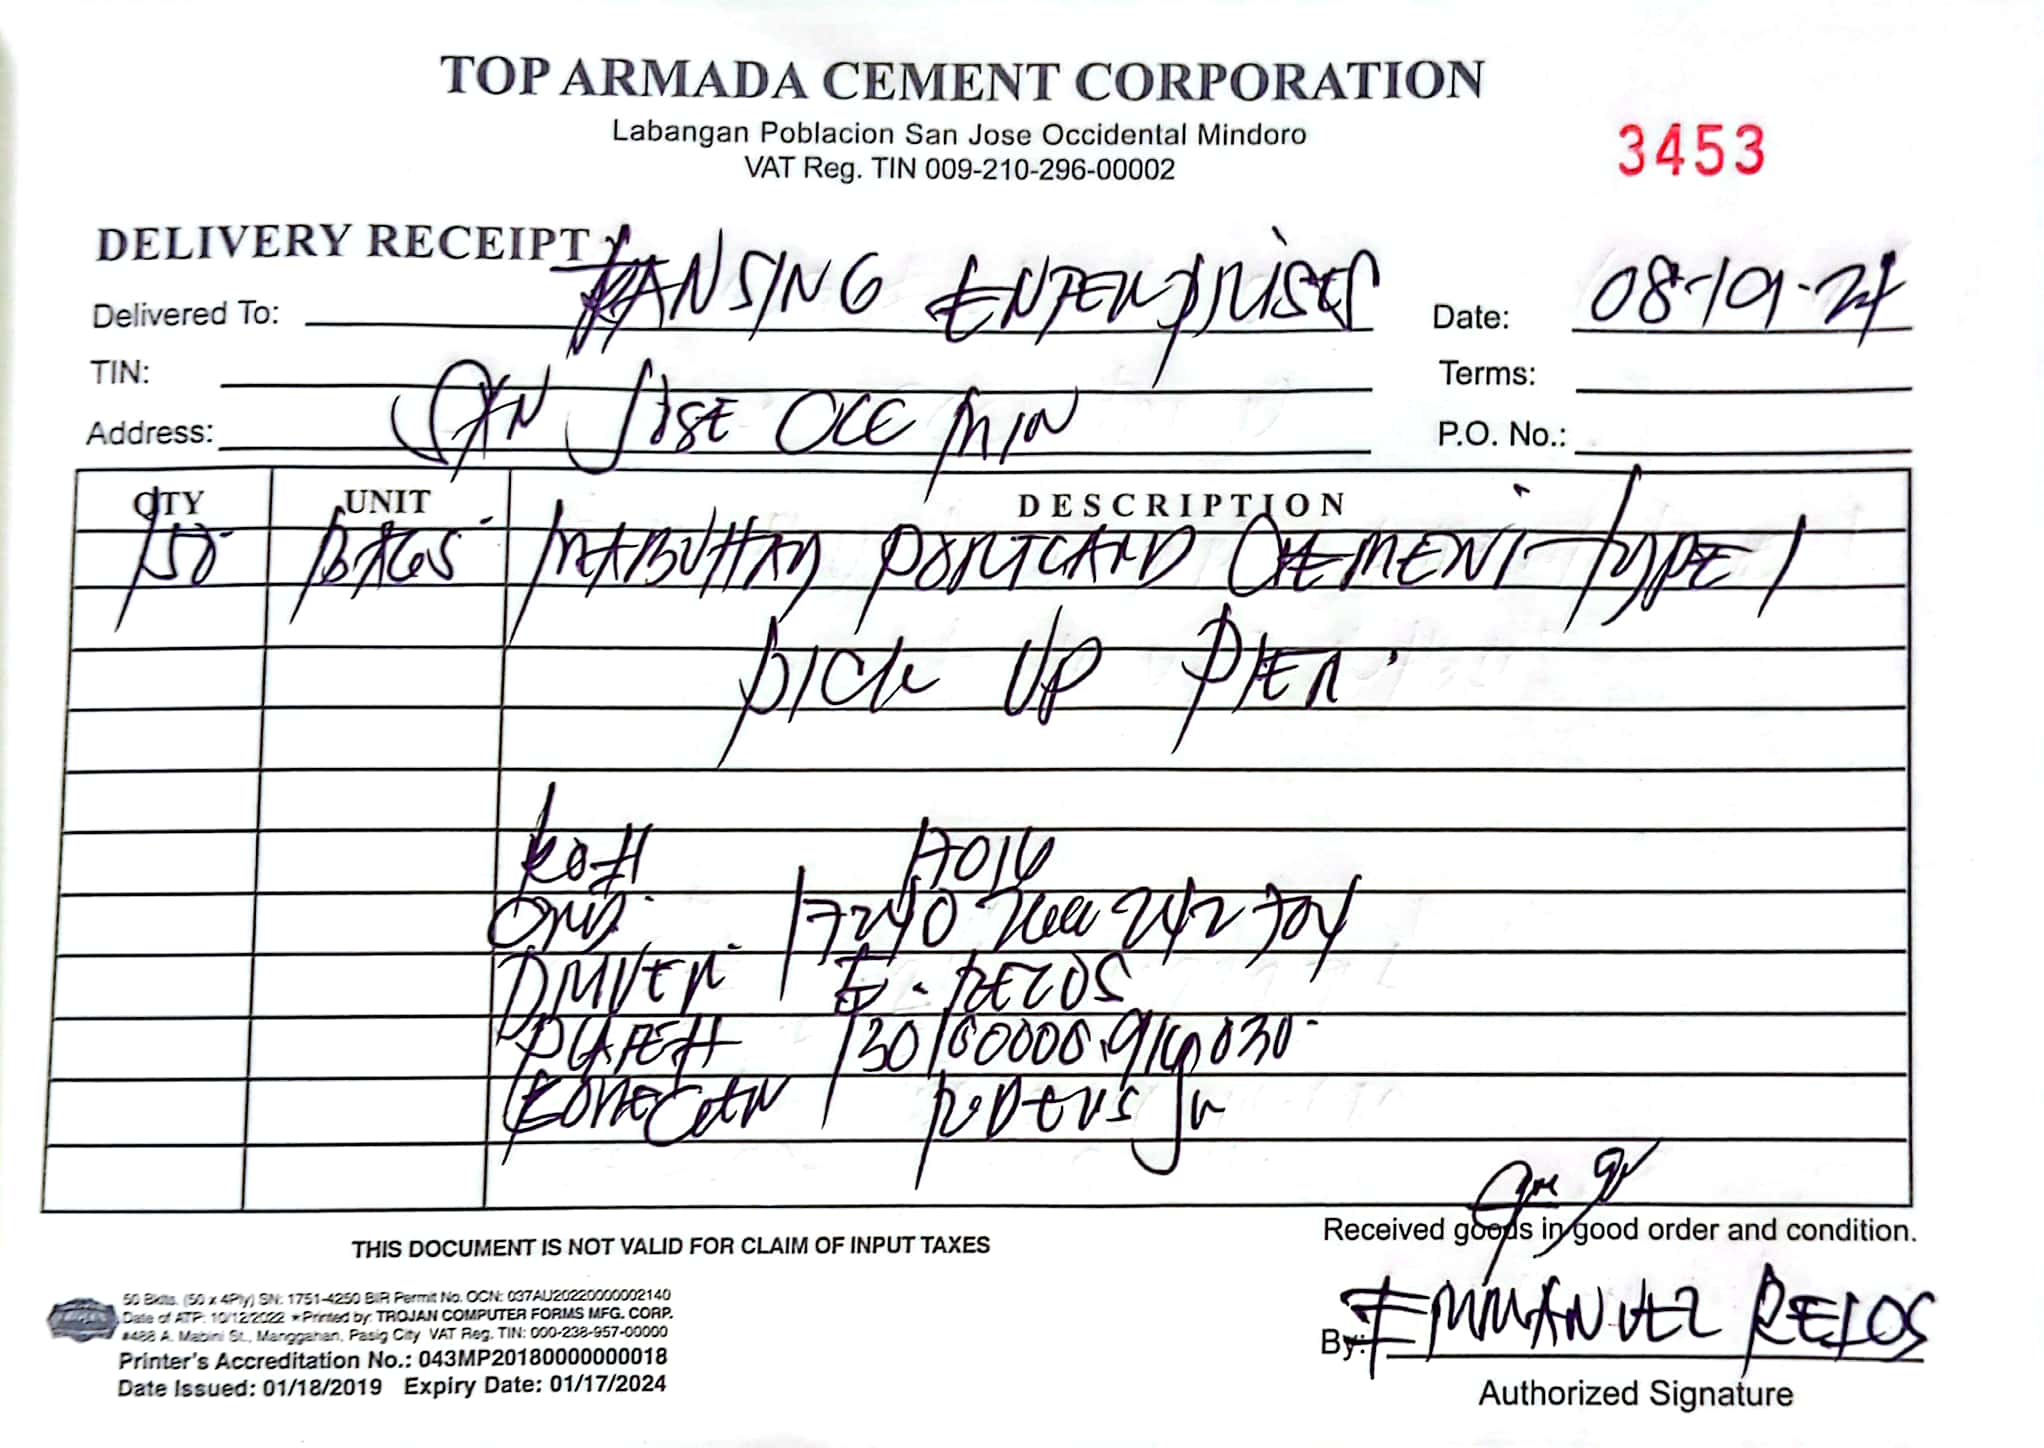 TOP ARMADA CEMENT CORPORATION
Labangan Poblacion San Jose Occidental Mindoro
VAT Reg. TIN 009-210-296-00002
3453
DELIVERY RECEIPT
Delivered To: KANSING ENTERPRISES Date: 08-19-24
TIN: Terms:
Address: SAN JOSE OCC MIN P.O. No.:
QTY UNIT DESCRIPTION
150 BAGS MABUHAY PORTLAND CEMENT TYPE 1
PICK UP PIER
17016
17240
DRIVER E. RELOS
PLATE# 1301
Received goods in good order and condition.
THIS DOCUMENT IS NOT VALID FOR CLAIM OF INPUT TAXES
50 Bklts. (50 x 4Ply) SN: 1751-4250 BIR Permit No. OCN: 037AU20220000002140
Date of ATP: 10/12/2022 • Printed by: TROJAN COMPUTER FORMS MFG. CORP.
#488 A. Mabini St., Manggahan, Pasig City VAT Reg. TIN: 000-238-957-00000
Printer's Accreditation No.: 043MP20180000000018
Date Issued: 01/18/2019 Expiry Date: 01/17/2024
By: EMMANUEL RELOS
Authorized Signature